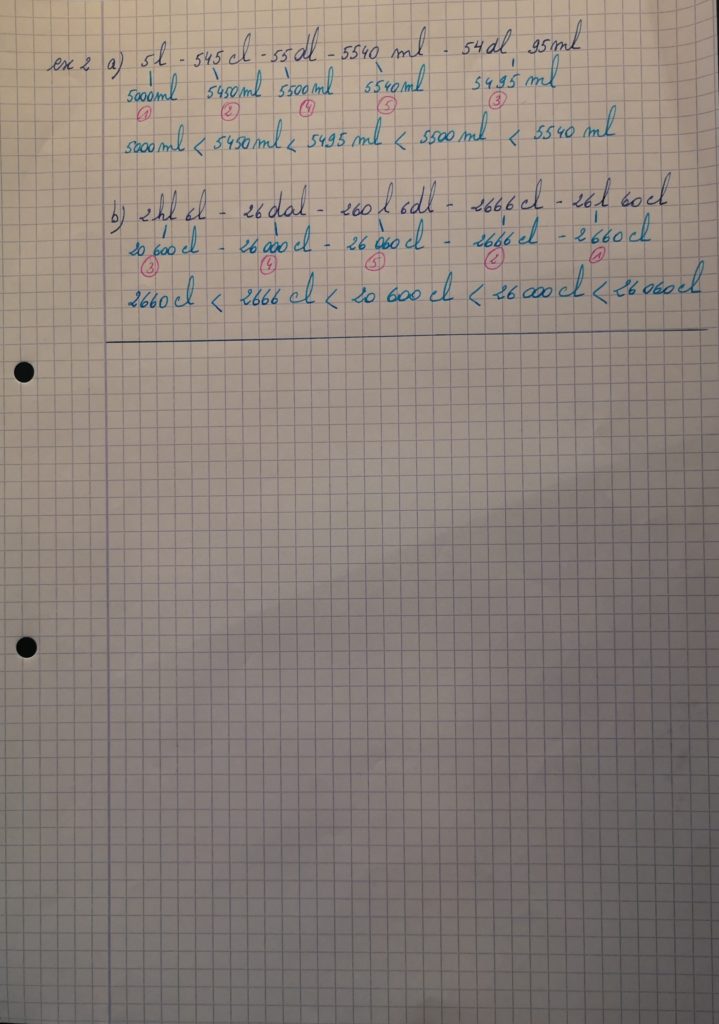 ex 2 a) 5l - 545cl - 55dl - 5540 ml - 54dl 95ml
5000ml 5450ml 5500ml 5540ml 5495 ml
1 2 4 5 3
5000ml < 5450ml < 5495 ml < 5500ml < 5540 ml
b) 2hl 6l - 26dal - 260l 6dl - 2666cl - 26l 60cl
20 600cl - 26 000cl - 26 060cl - 2666cl - 2660cl
3 4 5 2 1
2660cl < 2666cl < 20 600cl < 26 000cl < 26 060cl